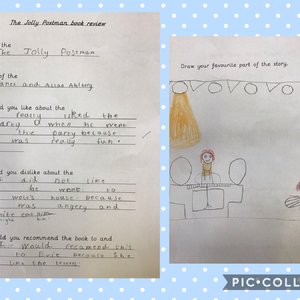 The Jolly Postman book review
the
The Jolly Postman
of the
Janet and Allan Ahlberg
you like about the
really liked the
party when he went
the party because
was really fun.
you dislike about the
did not like
he went to
wolf's house because
was angry and
him
you recommend the book to and
Would recomend this
to Evie because she
like the
Draw your favourite part of the story.
PIC•COLL